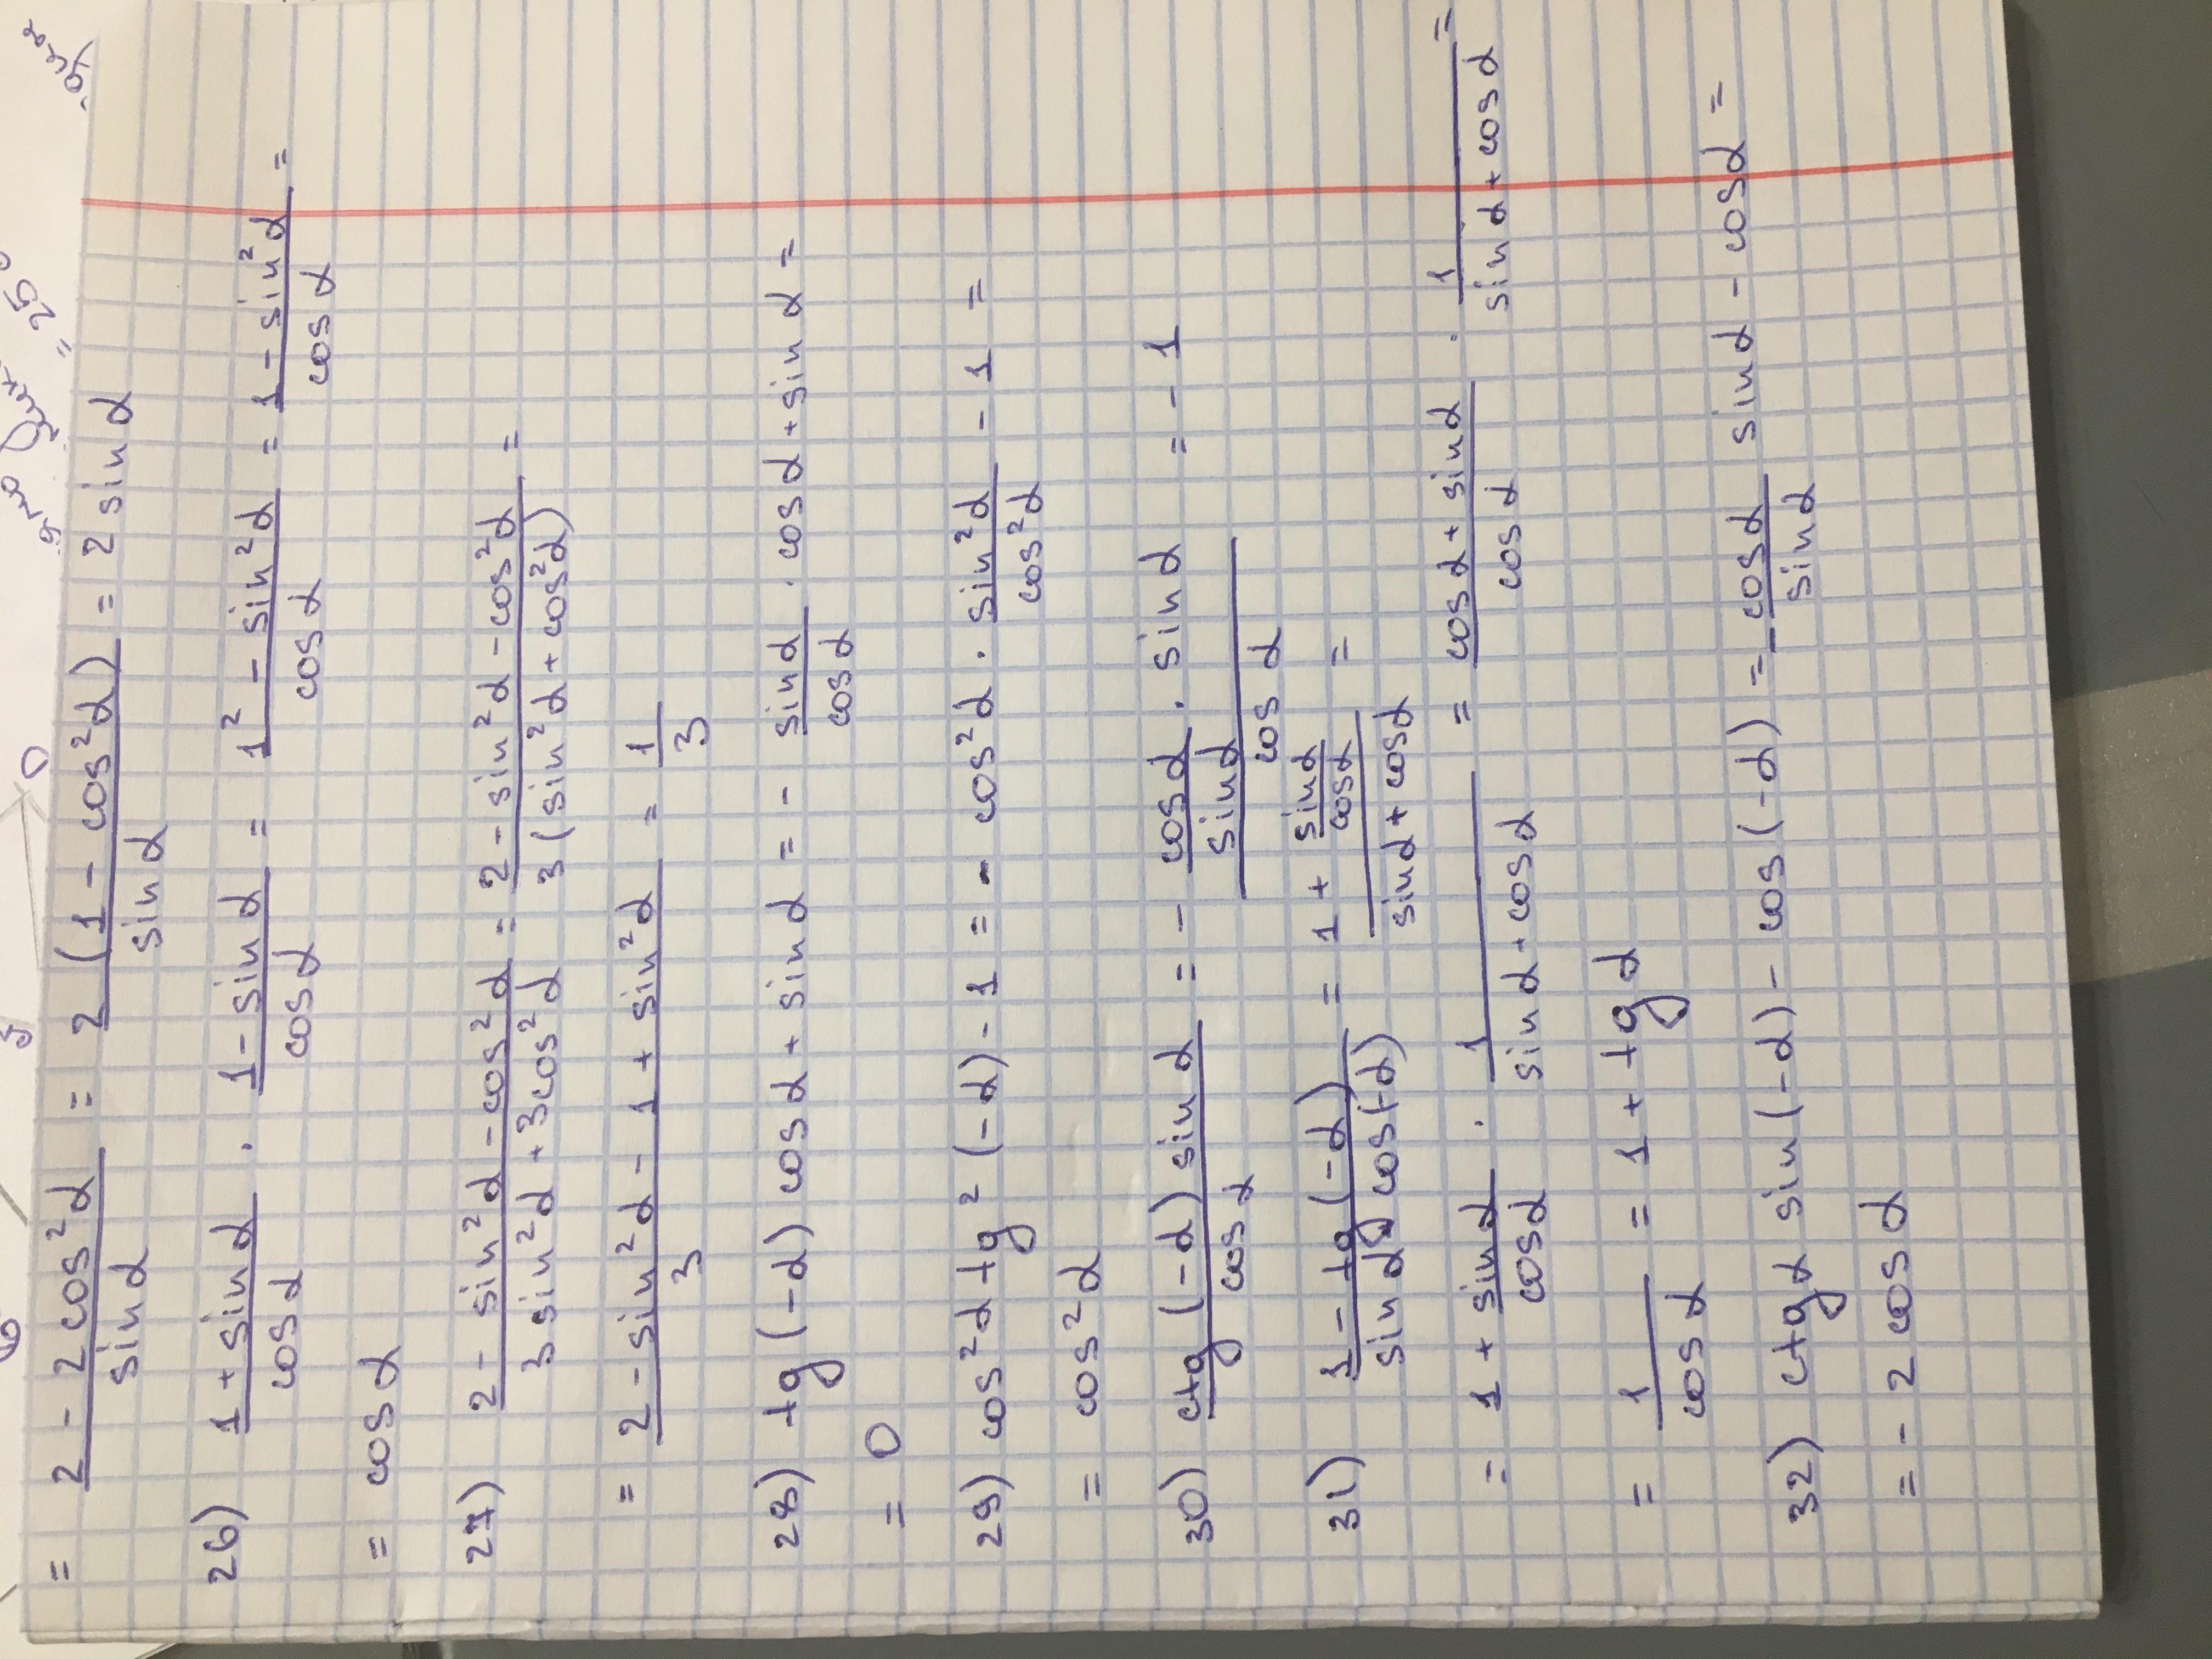 = (2 - 2cos²α)/(sinα) = (2(1 - cos²α))/(sinα) = 2sinα
26) (1+sinα)/(cosα) · (1-sinα)/(cosα) = (1² - sin²α)/(cosα) = (1 - sin²α)/(cosα) =
= cosα
27) (2 - sin²α - cos²α)/(3sin²α + 3cos²α) = (2 - sin²α - cos²α)/(3(sin²α + cos²α)) =
= (2 - sin²α - 1 + sin²α)/3 = 1/3
28) tg(-α) cosα + sinα = - (sinα)/(cosα) · cosα + sinα =
= 0
29) cos²α tg²(-α) - 1 = - cos²α · (sin²α)/(cos²α) - 1 =
= cos²α
30) (ctg(-α) sinα)/(cosα) = - ((cosα)/(sinα) · sinα)/(cosα) = - 1
31) (1 - tg(-α))/(sinα cos(-α)) = (1 + (sinα)/(cosα))/(sinα + cosα) =
= 1 + (sinα)/(cosα) · 1/(sinα + cosα) = (cosα + sinα)/(cosα) · 1/(sinα + cosα) =
= 1/(cosα) = 1 + tgα
32) ctgα sin(-α) - cos(-α) = - (cosα)/(sinα) sinα - cosα =
= - 2cosα